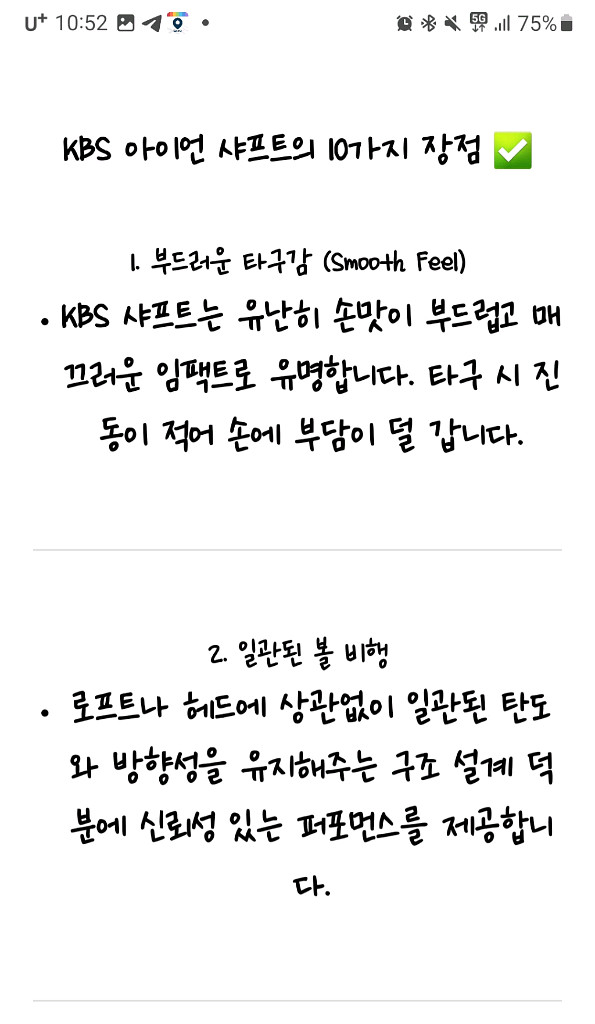 U+ 10:52 5G 75%
KBS 아이언 샤프트의 10가지 장점 ✅
1. 부드러운 타구감 (Smooth Feel)
• KBS 샤프트는 유난히 손맛이 부드럽고 매
끄러운 임팩트로 유명합니다. 타구 시 진
동이 적어 손에 부담이 덜 갑니다.
2. 일관된 볼 비행
• 로프트나 헤드에 상관없이 일관된 탄도
와 방향성을 유지해주는 구조 설계 덕
분에 신뢰성 있는 퍼포먼스를 제공합니
다.